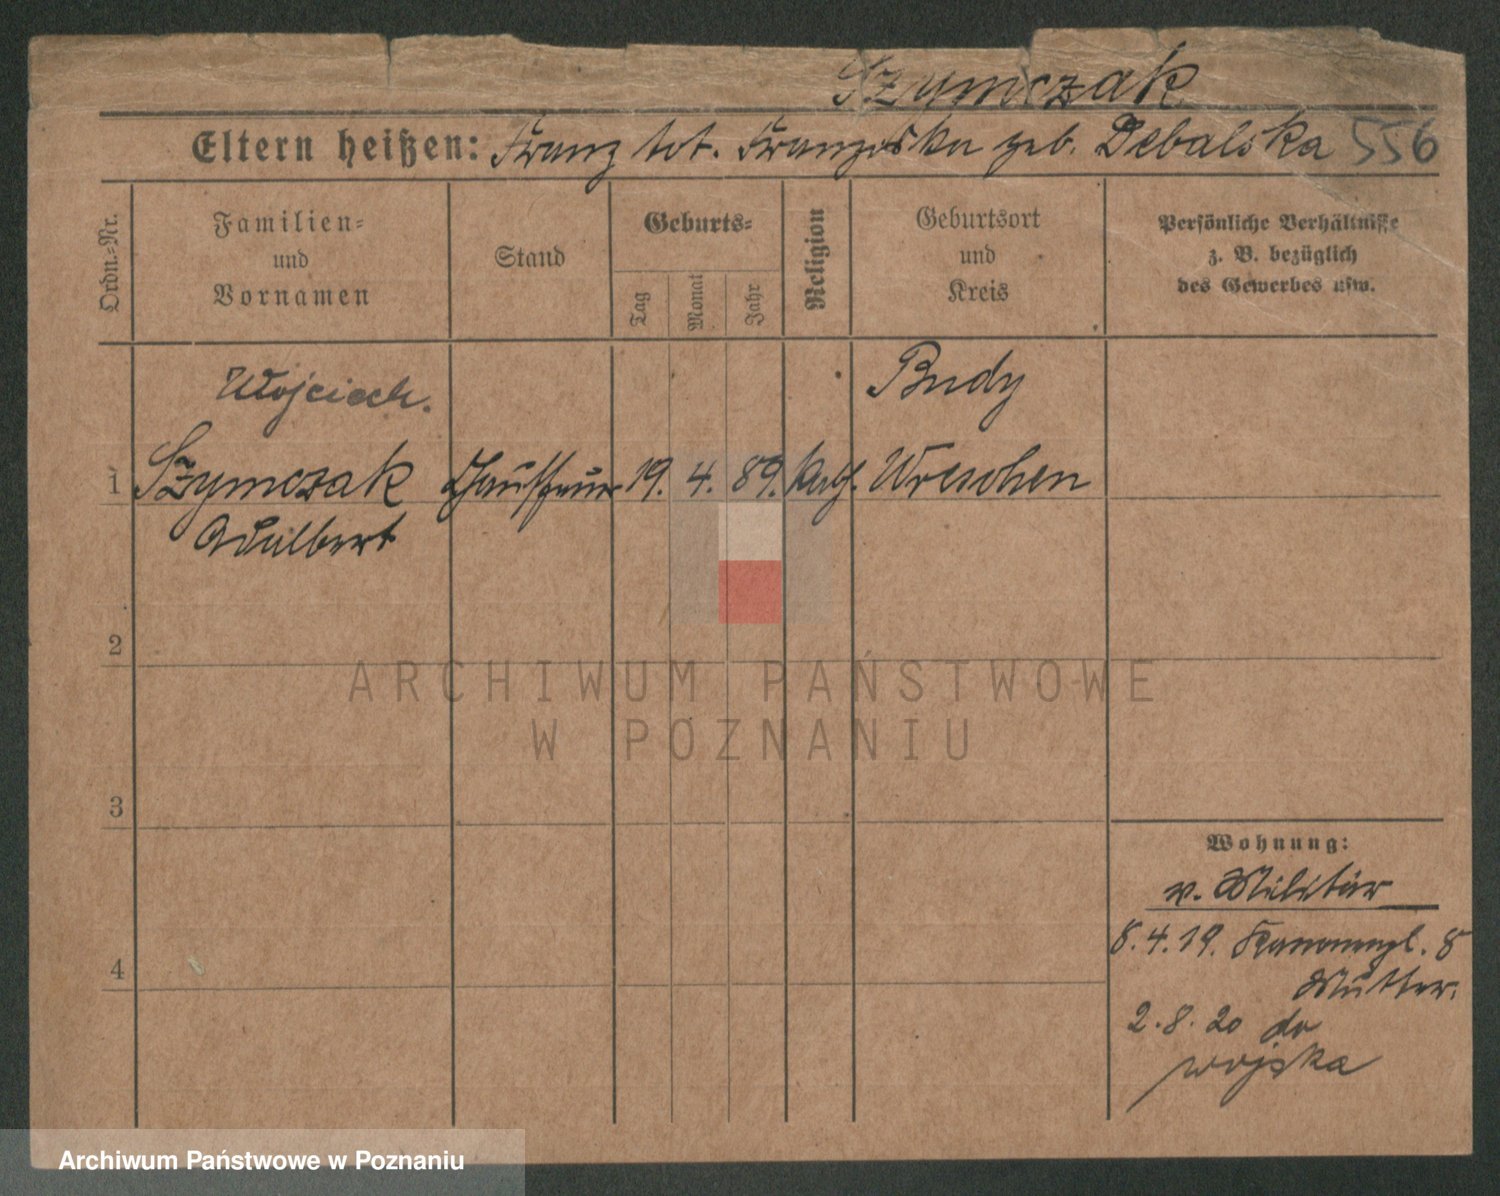 Szymczak
Eltern heißen: Franz tot. Franziska geb. Debalska 556
Ordn.-Nr.
Familien-
und
Vornamen
Stand
Geburts-
Tag
Monat
Jahr
Religion
Geburtsort
und
Kreis
Persönliche Verhältnisse
z. B. bezüglich
des Gewerbes usw.
Wojciech.
Budy
1 Szymczak 19. 4. 89. kath. Wreschen
Adalbert
2
3
4
Wohnung:
v. Militär
8.4.19. Kanonenpl. 8
Mutter.
2.8.20 do
wojska
ARCHIWUM PAŃSTWOWE
W POZNANIU
Archiwum Państwowe w Poznaniu